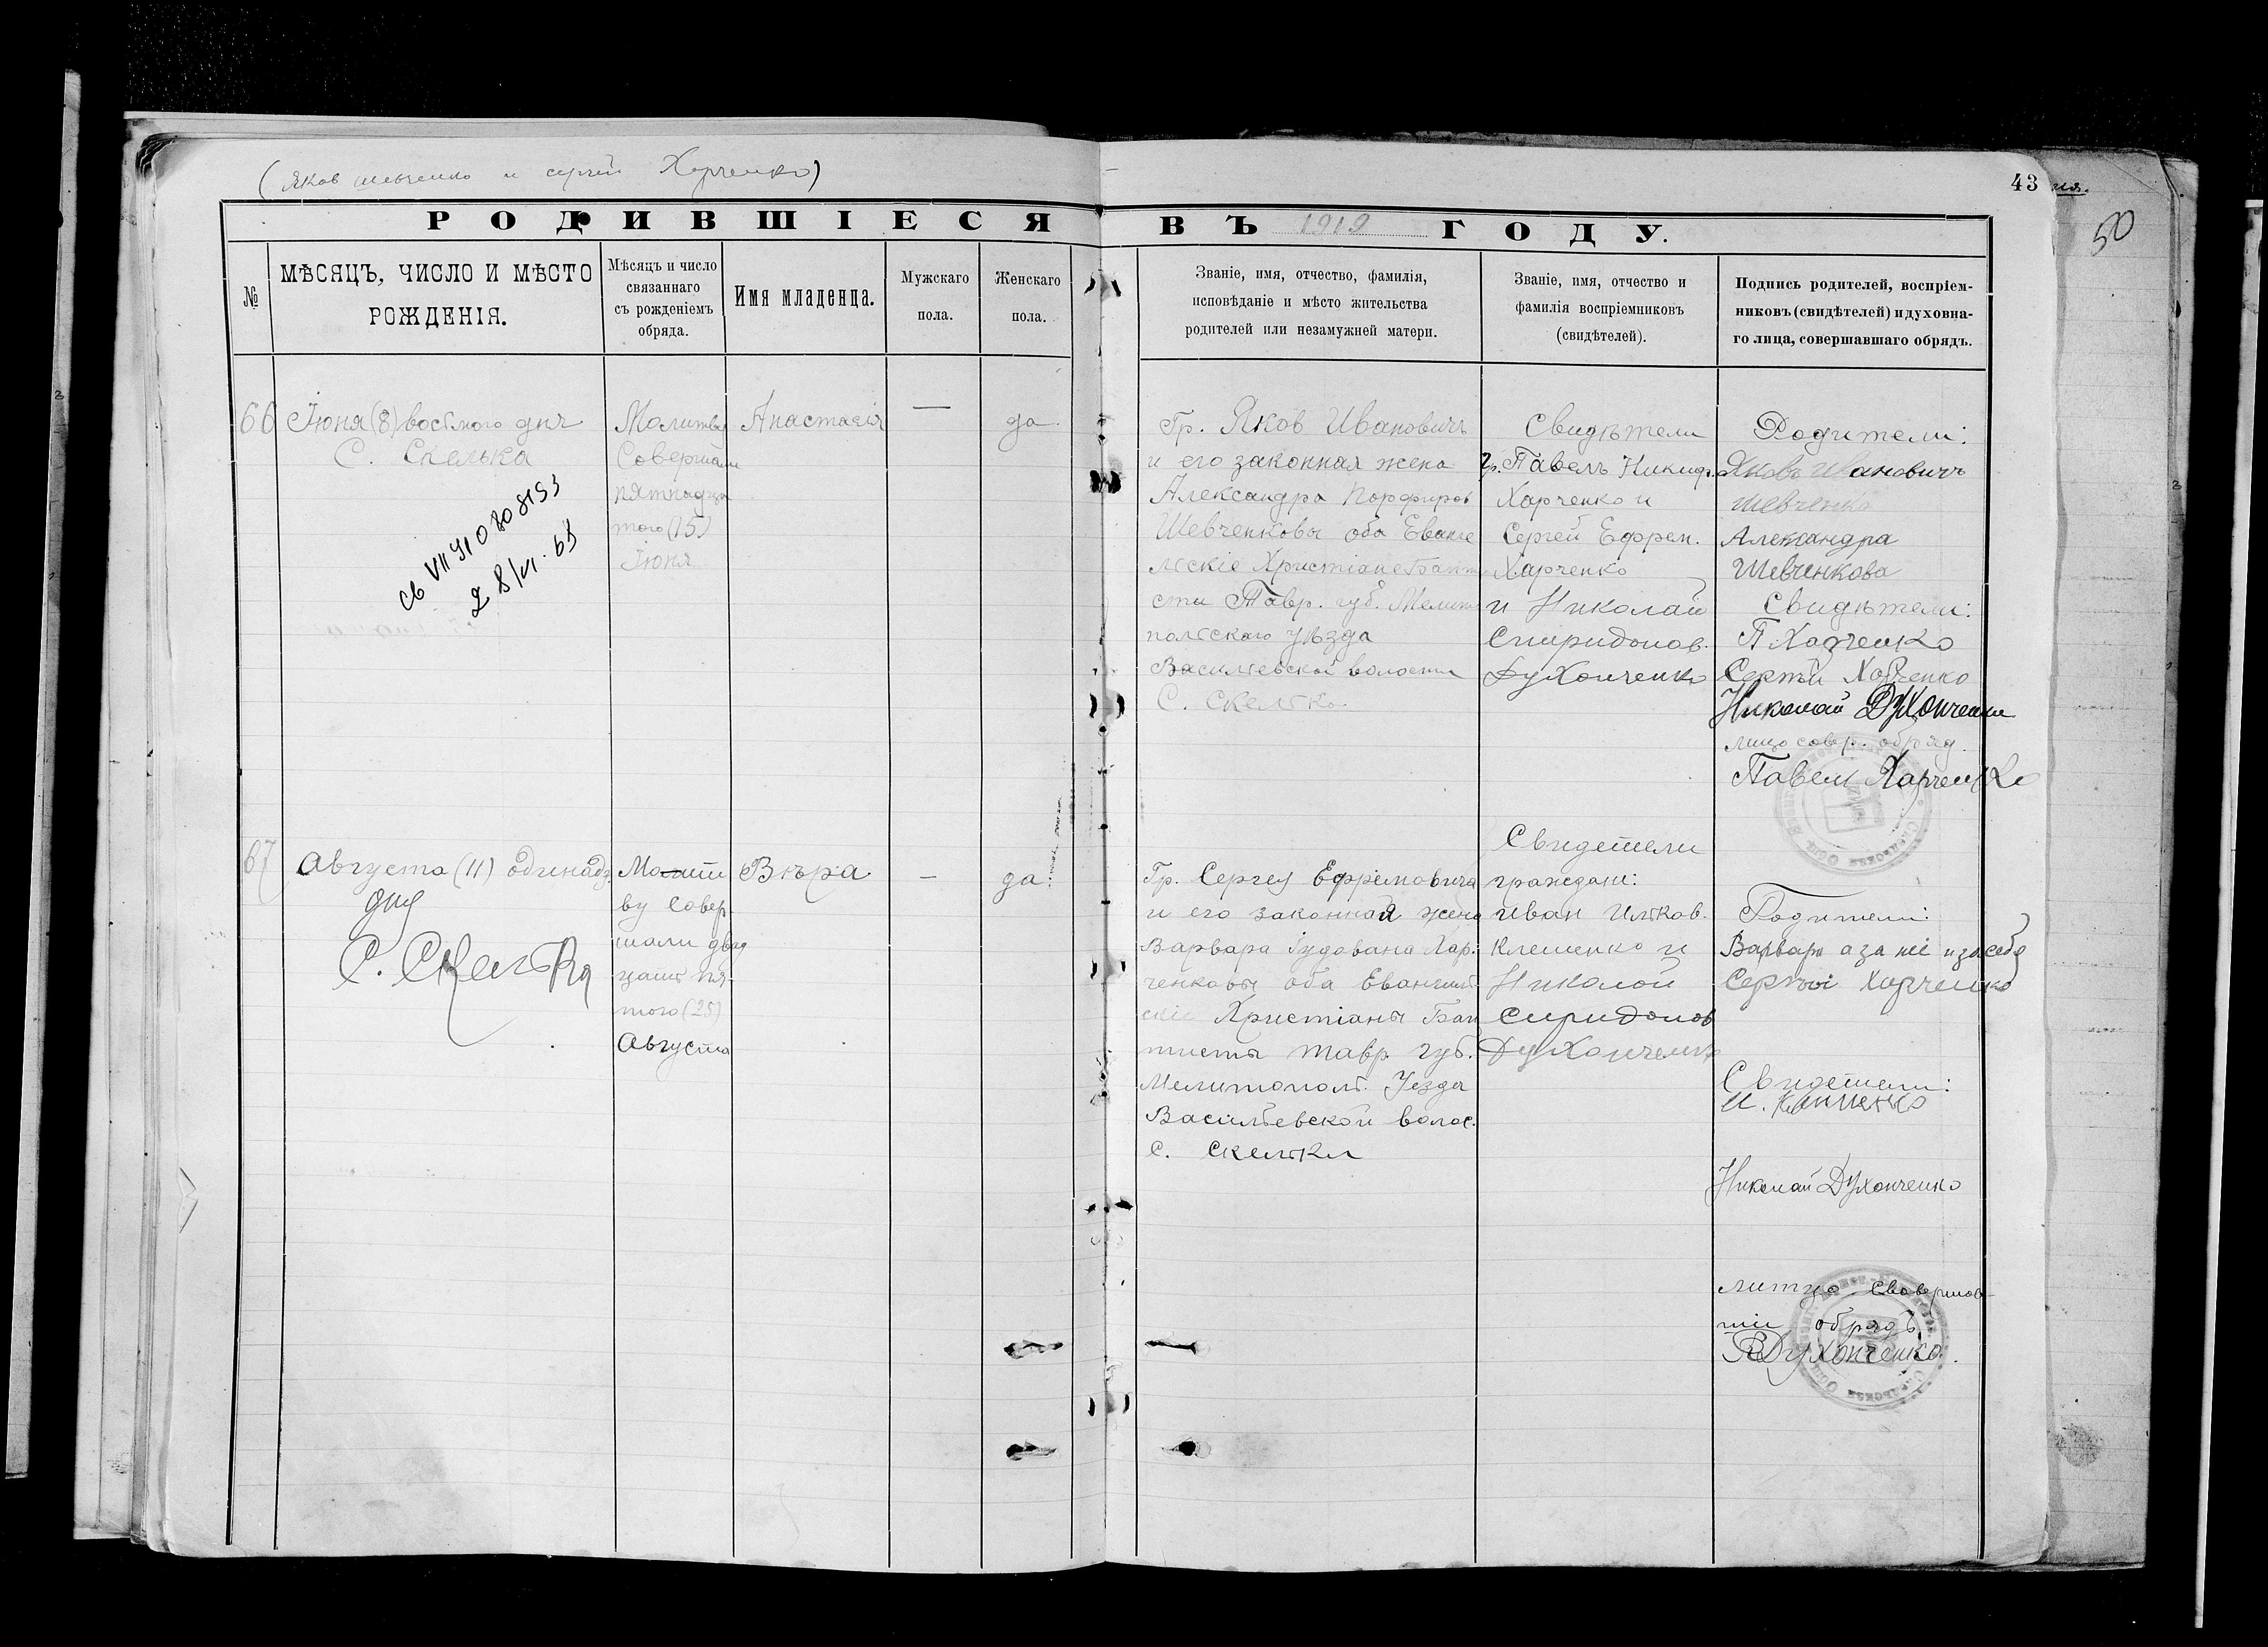 (Яков Шевченко и Сергей Харченко)
43
50
РОДИВШІЕСЯ ВЪ 1919 ГОДУ.
№
МѢСЯЦЪ, ЧИСЛО И МѢСТО
РОЖДЕНІЯ.
Мѣсяцъ и число
связаннаго
съ рожденіемъ
обряда.
Имя младенца.
Мужскаго
пола.
Женскаго
пола.
Званіе, имя, отчество, фамилія,
исповѣданіе и мѣсто жительства
родителей или незамужней матери.
Званіе, имя, отчество и
фамилія воспріемниковъ
(свидѣтелей).
Подпись родителей, воспріем-
никовъ (свидѣтелей) и духовна-
го лица, совершавшаго обрядъ.
66
Іюня (8) восьмого дня
С. Скелька
св VII ЯЮ
28/VI-68
Молитву
Совершали
пятнадца
того (15)
Іюня
Анастасія
—
да.
Гр. Яков Ивановичъ
и его законная жена
Александра Порфиров
Шевченковы оба Еванге
льскіе Христіане Бапти
сты Тавр. губ. Мелито
польскаго уѣзда
Васильевской волости
С. Скелька.
Свидѣтели
Гр. Павелъ Никиф.
Харченко и
Сергей Ефрем.
Харченко
и Николай
Спиридонов.
Духонченко
Родители:
Яковъ Ивановичъ
Шевченко
Александра
Шевченкова
Свидѣтели:
П. Харченко
Сергѣй Харченко
Николай Духонченко
лицо совр. обряд.
Павел Харченко
67
Августа (11) одинадц.
дня
С. Скелька
Молит
ву Совер-
шали двад
цать пя-
того (25)
Августа
Вѣра
—
да
Гр. Сергея Ефремовича
и его законная жена
Варвара Гудована Хар-
ченковы оба Евангель
скіе Христіаны Бап
тисты Тавр. губ.
Мелитополь. Уезда
Васильевской волос.
С. Скельки
Свидетели
граждане:
Иван Ильков.
Клешенко и
Николай
Спиридонов
Духонченко
Родители:
Варвара а за неі и за себя
Сергѣй Харченко
Свидетели:
И.
Николай Духонченко
литцо Совершав-
шіи обрядъ
Духонченко.